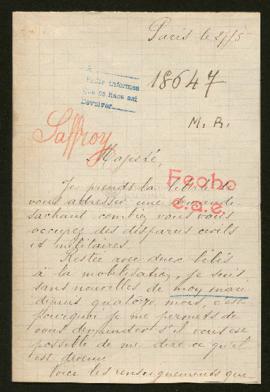 Paris le 27/5
A
Pedir informes
que se hace así
Devolver
18647
M. R.
Saffroy
Majesté,
Fecho
c.a.e.
Je prends la liberté de
vous adresser une demande
sachant combien vous vous
occupez des disparus civils
et militaires.
Restée avec deux bébés
à la mobilisation, je suis
sans nouvelles de mon mari
depuis quatorze mois, c'est
pourquoi je me permets de
vous demander s'il vous est
possible de me dire ce qu'il
est devenu
Voici les renseignements que